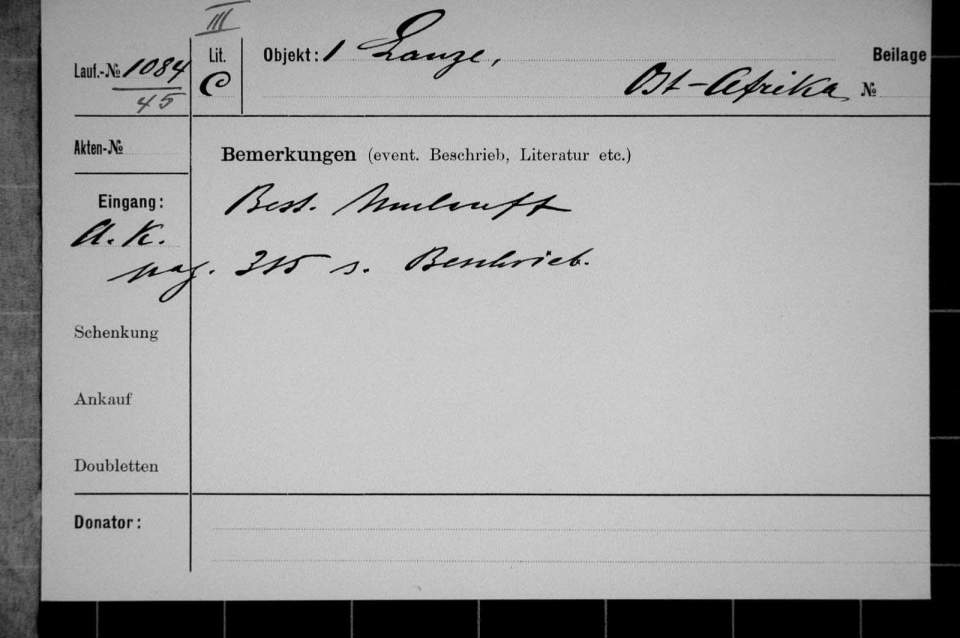 III
Lauf.-№ 1084 Lit. Objekt: 1 Lanze, Beilage
45 C Ost-Afrika №
Akten-№
Bemerkungen (event. Beschrieb, Literatur etc.)
Eingang: Best.
A. K.
pag. 315 s. Beschrieb.
Schenkung
Ankauf
Doubletten
Donator: